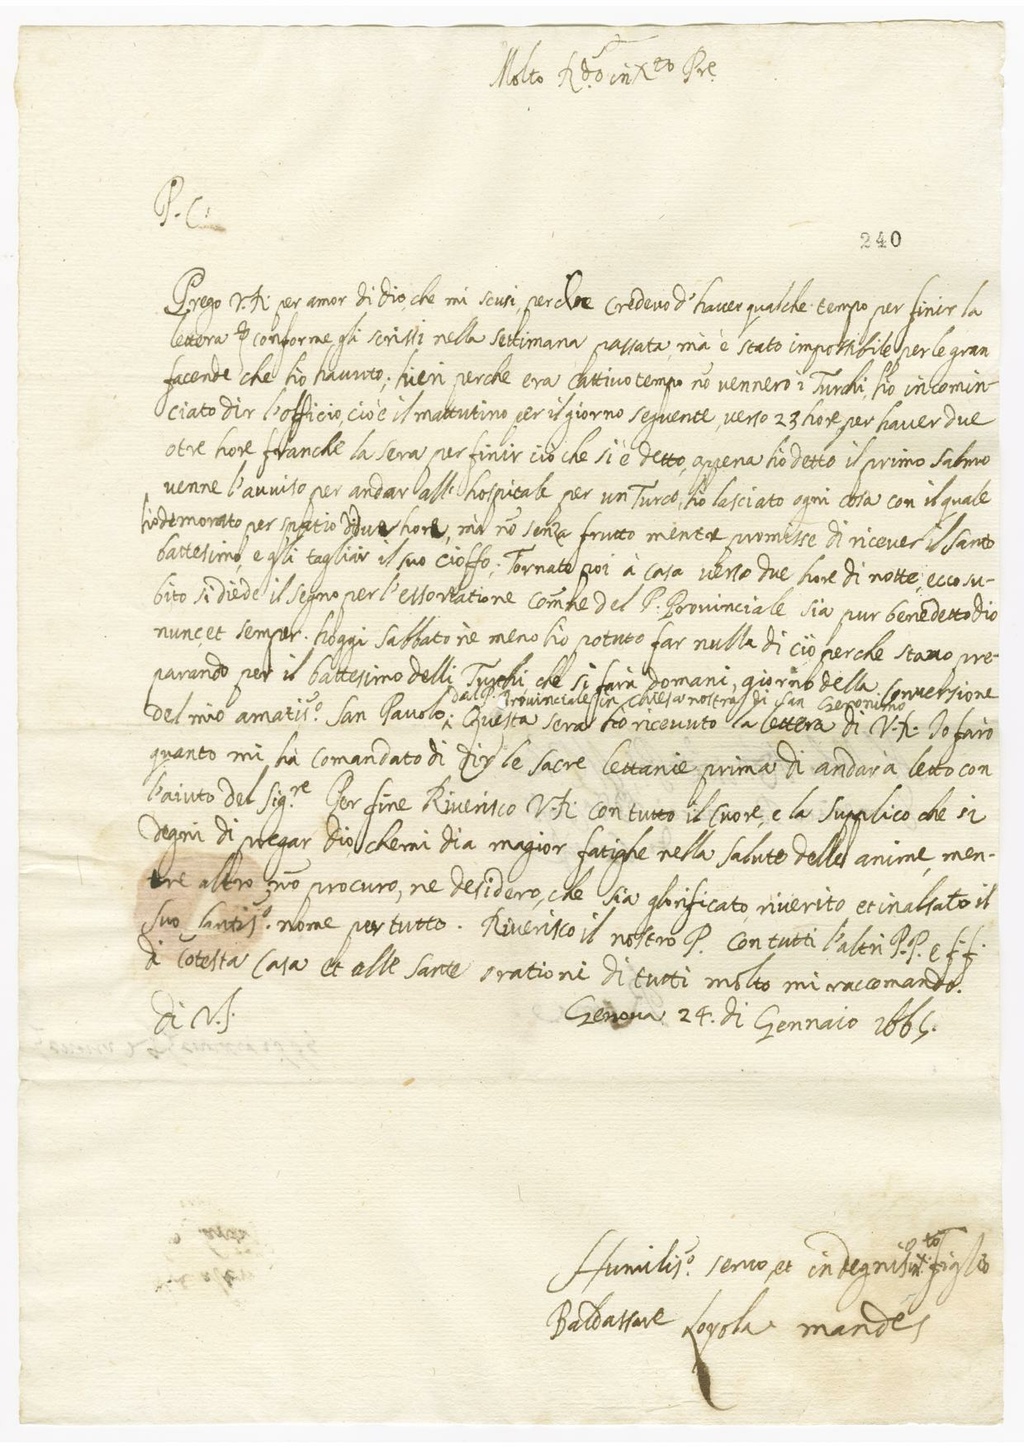 Molto R.do in X.to Pre.
P. C.
240
Prego V.R. per amor di dio, che mi scusi, perche credevo d'haver qualche tempo per finir la
lettera conforme gli scrissi nella settimana passata, mà è stato impossibile per le gran
facende che hò havuto; hieri perche era cattivo tempo nõ vennero i Turchi, hò incomin-
ciato dir l'officio, cioè il mattutino per il giorno seguente, verso 23 hore, per haver due
o tre hore franche la sera per finir ciò che si è detto, appena hò detto il primo salmo
venne l'avviso per andar all' hospitale per un Turco, hò lasciato ogni cosa con il quale
hò demorato per spatio di due hore, mà nõ senza frutto mentre promisse di ricever il santo
battesimo, e gli tagliar il suo cioffo; Tornato poi à casa verso due hore di notte, ecco su-
bito si diede il segno per l'essortatione com̃e del P. Provinciale sia pur benedetto dio
nunc, et semper. hoggi sabbato ne meno hò potuto far nulla di ciò perche stavo pre-
parando per il battesimo delli Turchi che si farà domani, giorno della conversione
dal P. Provinciale in chiesa nostra di San Geronimo
del mio amatis.o San Pavolo; Questa sera hò ricevuto la lettera di V.R. Io farò
quanto mi hà comandato di dir le sacre lettanie prima di andar à letto con
l'aiuto del Sig.re Per fine Riverisco V.R. con tutto il cuore, e la supplico che si
degni di pregar dio, che mi dia magior fatighe nella salute delle anime, men-
tre altro nõ procuro, ne desidero, che sia glorificato, riverito et inalsato il
suo santis.o nome per tutto. Riverisco il nostro P. con tutti l'altri P.P. e f.f.
di cotesta Casa et alle sante orationi di tutti molto mi raccomando.
di V.R. Genova 24. di Gennaio 1665.
Humilis.o servo, et indegnis.o in X.to figlio
Baldassare Loyola mandes